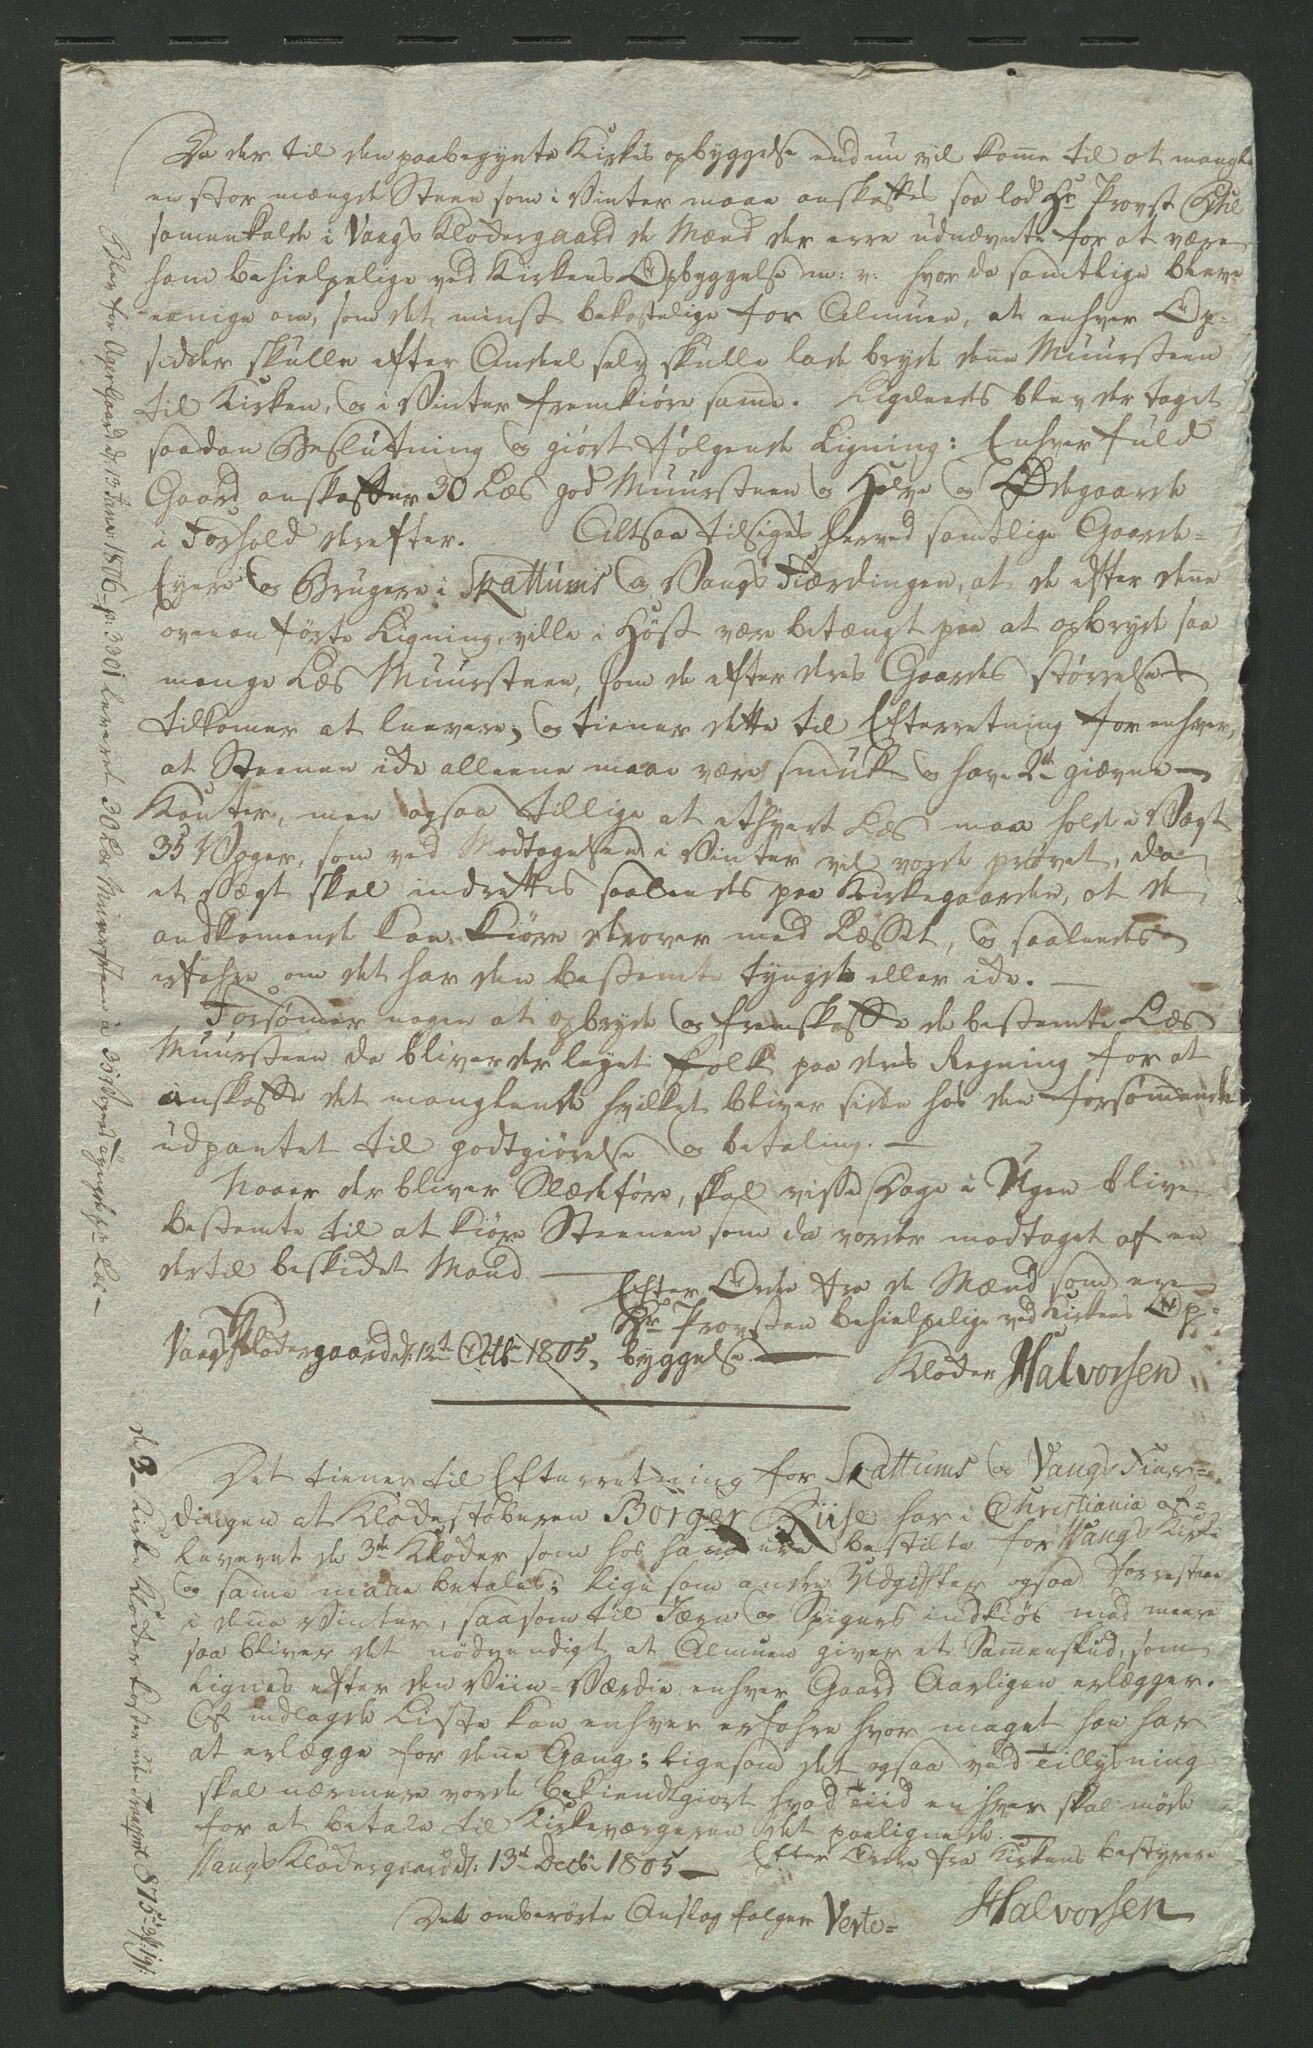 Da der til den paabegynte Kirkes opbyggelse endnu vil kom̅e til at mangle
en stor mængde Steen som i Vinter maae anskaffes saa lod Hr. Provst
sam̅enkalde i Vangs Klockergaard de Mænd der ere udnævnte for at være
ham behielpelige ved Kirkens Opbyggelse m: v: hvor da samtlige bleve
eenige om, som det minst bekostelige for Almuen, at enhver Op-
sidder skulle efter Andeel selv skulle lade bryde den̅e Muursteen
til Kirken, og i Vinter fremkiøre sam̅e. Ligeleeds blev der taget
saadan Beslutning og giort følgende Ligning: Enhver fuld
Gaard anskaffer 30 Læs god Muursteen og Halve og Ødegaarde
i Forhold derefter. Altsaa tilsiges herved samtlige Gaard-
Eyere og Brugere i Skattums og Vangs Fiærdingen, at de efter den̅e
ovenanførte Ligning ville i Høst være betængt paa at opbryde saa
mange Læs Muursteen, som de efter deres Gaardes størrelse
tilkom̅er at levere, og tiener dette til Efterretning for enhver,
at Steenen icke alleene maae være smuk og have 2de giævne
Kanter, men ogsaa tillige at ethvert Læs maa holde i Vægt
35 Voger, som ved Modtagelsen i Vinter vil vorde prøvet, da
et Vægt skal indrettes saaleedes paa Kirkegaarden, at de
andkom̅ende kan kiøre derover med Læsset, og saaleedes
erfahre om det har den bestemte tyngde eller icke.
Forsøm̅er nogen at opbryde og fremskaffe de bestemte Læs
Muursteen da bliver der leyet folk paa deres Regning for at
anskaffe det manglende hvilket bliver siden hos den forsøm̅ende
udpantet til godtgiørelse og betaling.
Naar der bliver Slædeføre, skal visse Dage i Ugen blive
bestemte til at kiøre Steenen som da vorder modtaget af en
dertil beskicket Mand.
Efter Ordre fra de Mænd som ere
Hr. Provsten behielpelige ved Kirkens Op-
Vangs Klockergaard d: 12te Octbr 1805, byggelse.
Klocker Halvorsen
Det tiener til Efterretning for Skattums og Vangs Fiær-
dingen at Klockestøberen Börger Riise har i Christiania af-
leveret de 3de Klocker som hos ham ere bestilte for Vangs Kirke
og sam̅e maae betales; lige som andre Udgifter ogsaa forrestaae
i den̅e Vinter, saasom til Jærn og Spigers indkiøb med meere
saa bliver det nødvendigt at Almuen giver et Sam̅enskud, som
Lignes efter den Viin-Værdie enhver Gaard Aarligen erlægger.
Af indlagde Liste kan enhver erfahre hvor meget han har
at erlægge for den̅e Gang; ligesom det ogsaa ved tillysning
skal nærmere vorde bekiendtgiort hvad tiid enhver skal møde
for at betale til Kirkeværgeren det paalignede.
Vangs Klockergaard d: 13de Decbr 1805 Efter Ordre fra Kirkens bestyrere
Halvorsen
Det omberørte Anslag følger Verte-
Blev for Ager Gaard d 13 Janv: 1806 leveret 30 Læs Muursteen à 35 Voger tyngde pr Læs
de 3 Kirke Klocker koster